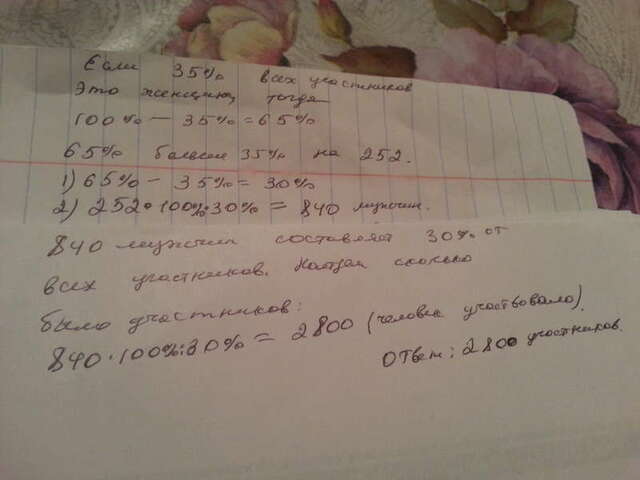 Если 35% всех участников
Это женщин, тогда
100% - 35% = 65%
65% больше 35% на 252.
1) 65% - 35% = 30%
2) 252•100%:30% = 840 мужчин.
840 мужчин составляет 30% от
всех участников. Найдём сколько
было участников:
840•100%:30% = 2800 (человек участвовало).
Ответ: 2800 участников.